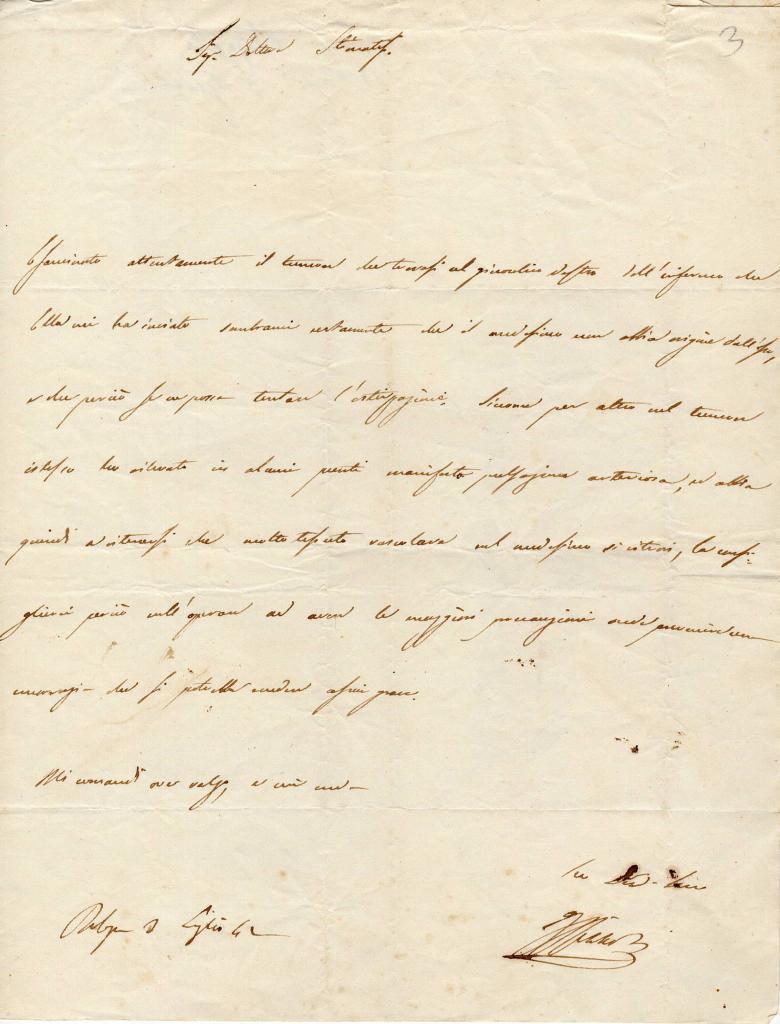 3
Sig. Dottor Stimatiss.
Esaminato attentamente il tumore che trovasi al ginocchio destro dell'infermo che
Ella mi ha inviato sembrami certamente che il medesimo non abbia origine dall'
e che perciò se ne possa tentare l'estirpazione. Siccome per altro nel tumore
istesso ho rilevato in alcuni punti manifesta pulsazione arteriosa, ed abbia
quindi a ritenersi che molto tessuto vascolare nel medesimo si ritrovi, la consi-
glierei perciò nell'operare ad avere le maggiori precauzioni onde prevenire una
emorragia che si potrebbe rendere assai grave.
Mi comandi ove valga, e mi
Luglio 42